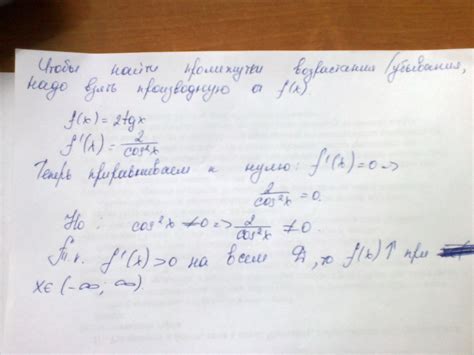 Чтобы найти промежутки возрастания/убывания,
надо взять производную от f(x).
f(x)=2tgx
f'(x)=2/cos²x
Теперь приравниваем к нулю: f'(x)=0 =>
2/cos²x=0.
Но: cos²x≠0=>2/cos²x≠0.
Т.к. f'(x)>0 на всем D, то f(x)↑ при
x∈(-∞; ∞)